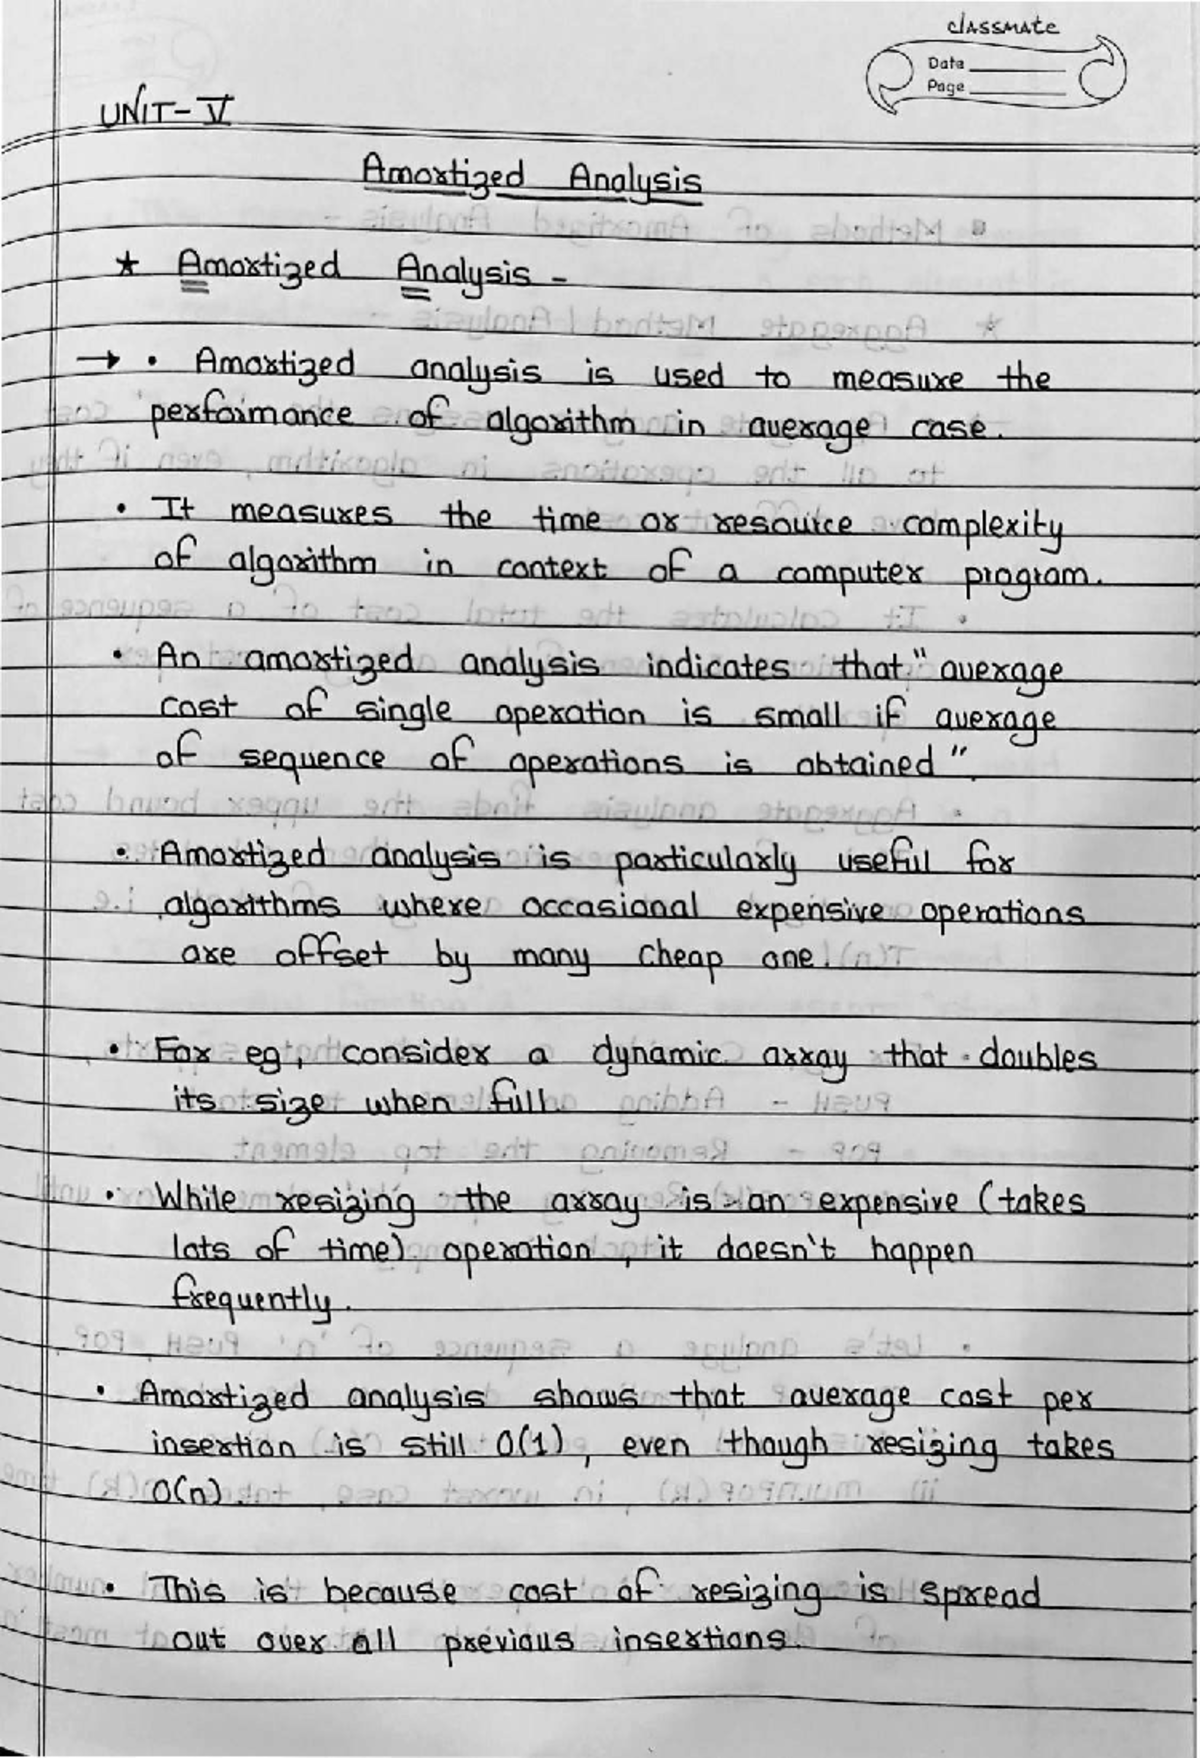 classmate
Date
Page
UNIT-V
Amortized Analysis
* Amortized Analysis -
→ • Amortized analysis is used to measure the
performance of algorithm in average case.
• It measures the time or resource complexity
of algorithm in context of a computer program.
• An amortized analysis indicates that "average
cost of single operation is small if average
of sequence of operations is obtained".
• Amortized analysis is particularly useful for
algorithms where occasional expensive operations
are offset by many cheap one.
• For eg, consider a dynamic array that doubles
its size when full.
• While resizing the array is an expensive (takes
lots of time) operation, it doesn't happen
frequently.
• Amortized analysis shows that average cost per
insertion is still O(1), even though resizing takes
O(n).
• This is because cost of resizing is spread
out over all previous insertions.